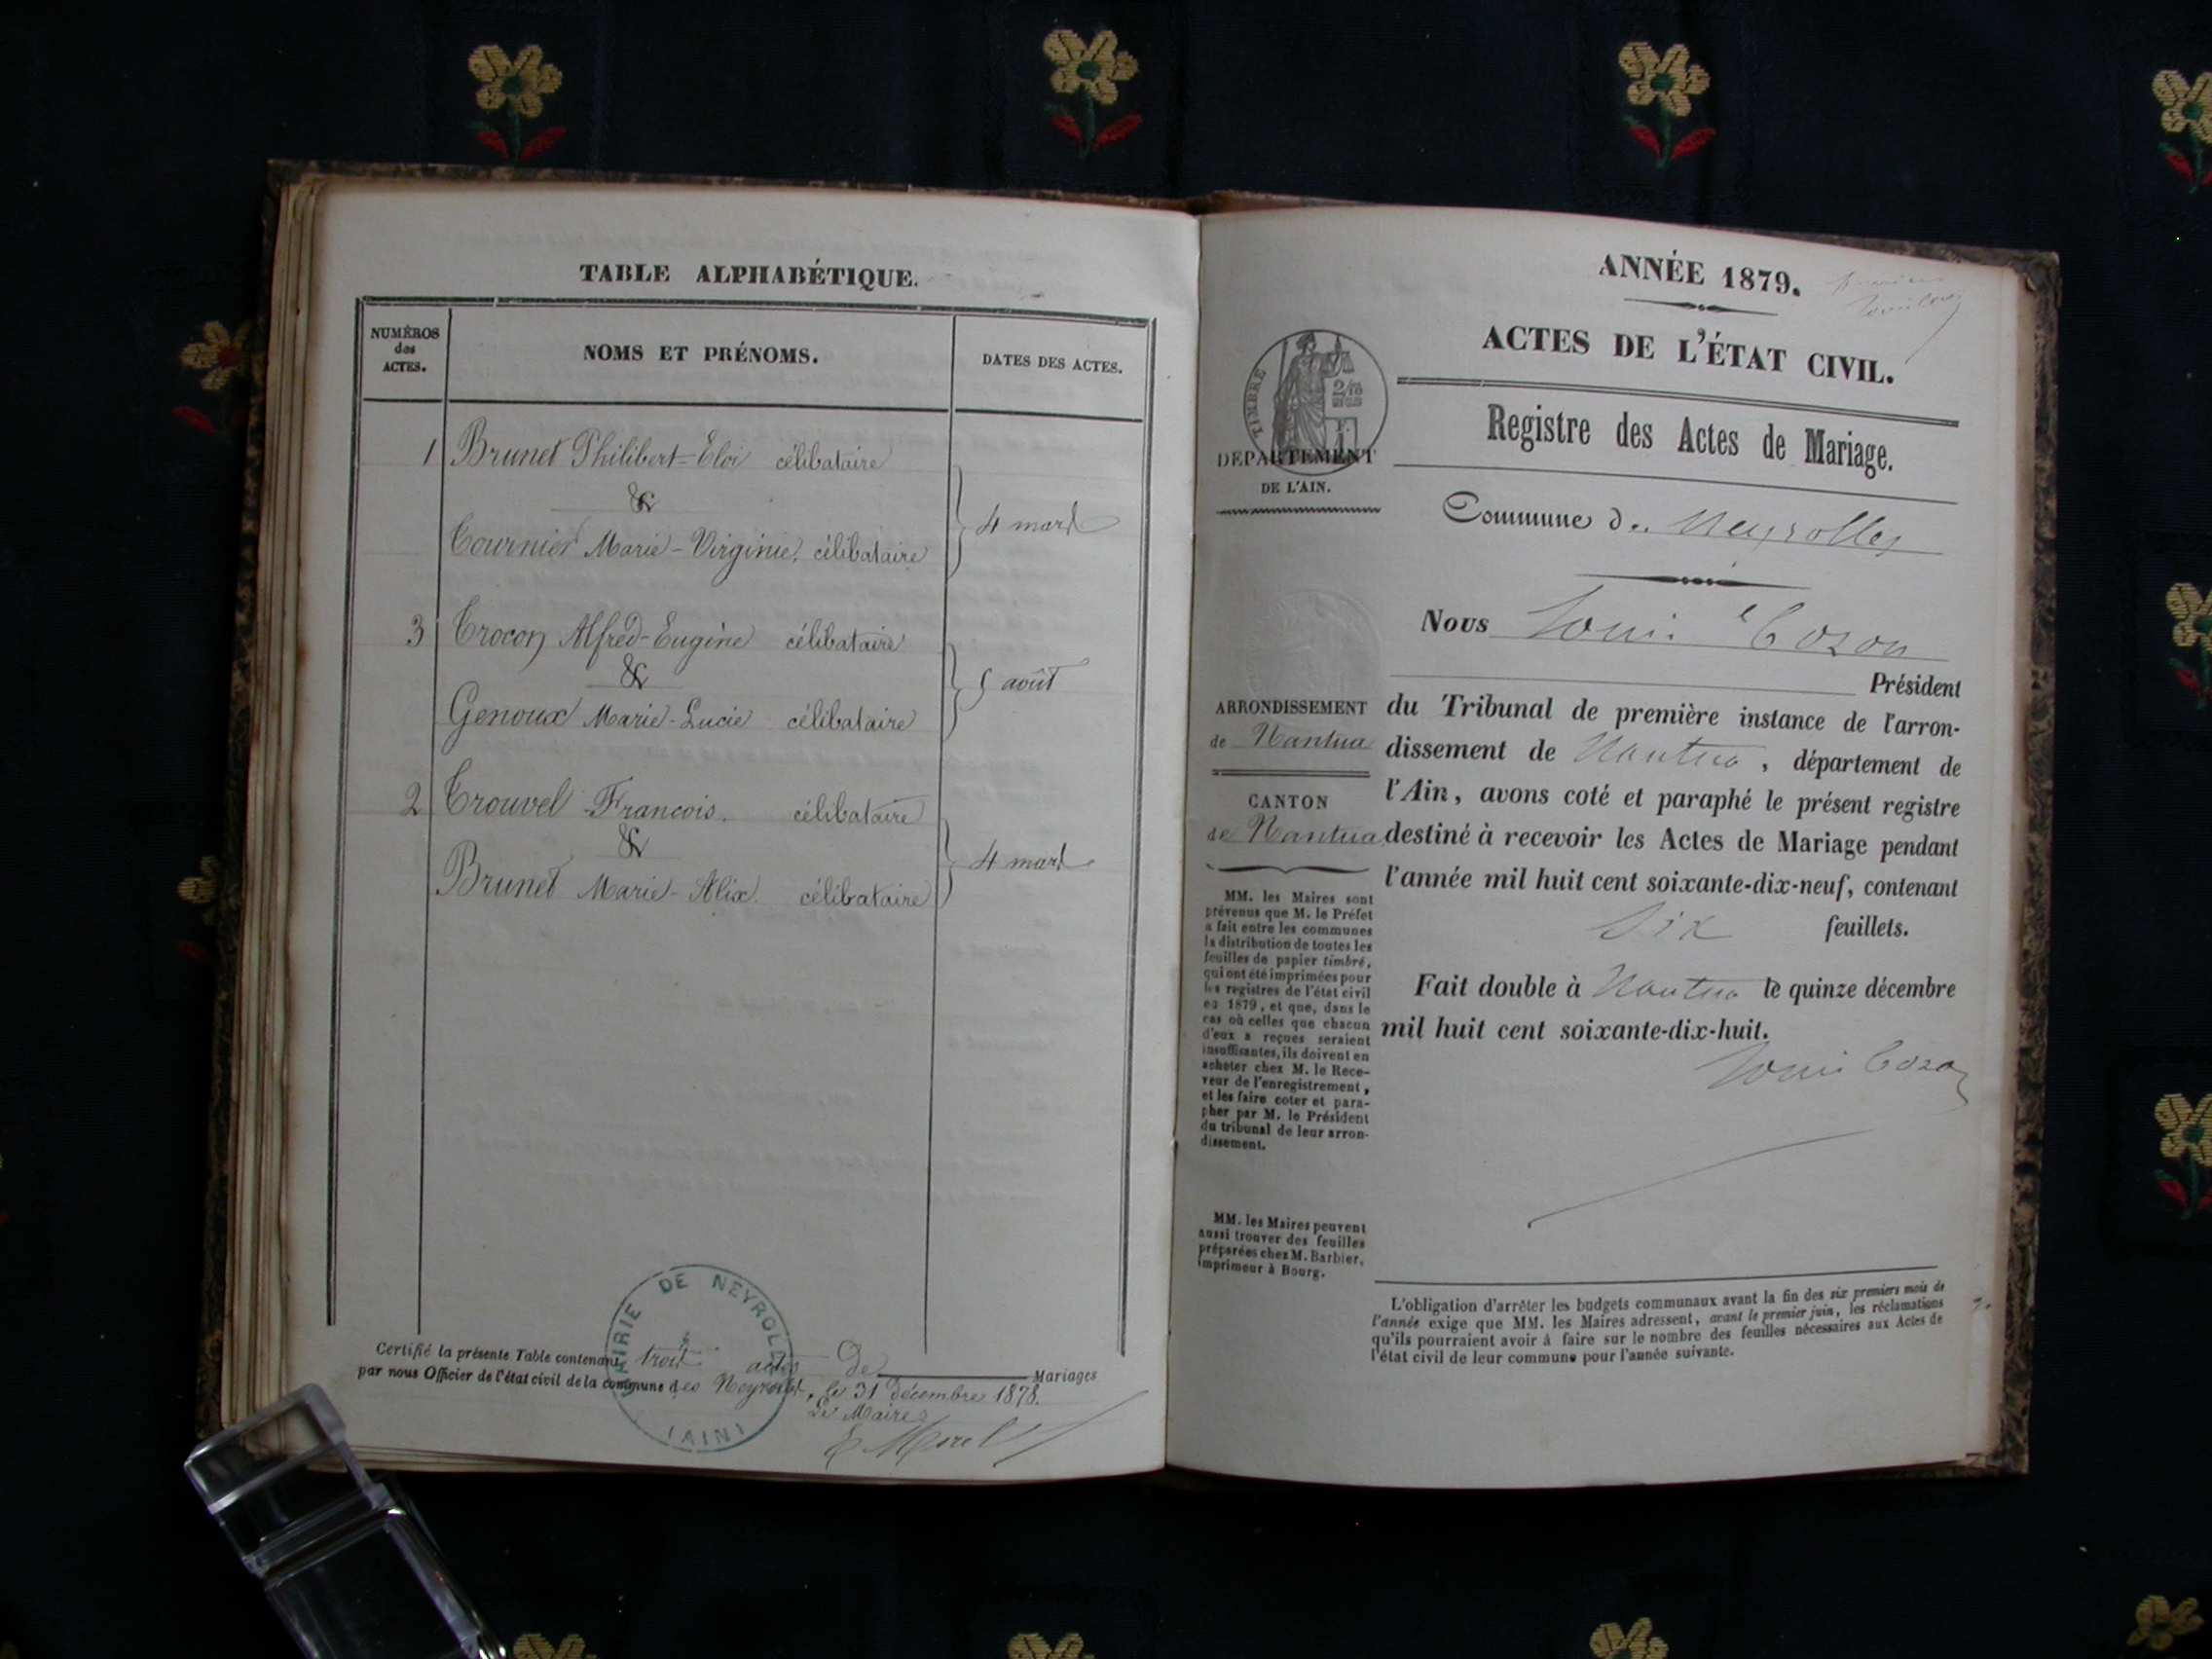 TABLE ALPHABÉTIQUE.
NUMÉROS
des
ACTES.
NOMS ET PRÉNOMS.
DATES DES ACTES.
1 Brunet Philibert-Eloi célibataire
&
Tournier Marie-Virginie. célibataire
4 mars
3 Crocon Alfred-Eugène célibataire
&
Genoux Marie-Lucie célibataire
5 août
2 Trouvel François. célibataire
&
Brunet Marie-Alix. célibataire
4 mars
Certifié la présente Table contenant trois actes de Mariages
par nous Officier de l'état civil de la commune des Neyrolles, le 31 décembre 1878.
Le Maire
E Morel
MAIRIE DE NEYROLLES
(AIN)
ANNÉE 1879.
ACTES DE L'ÉTAT CIVIL.
TIMBRE
2/10
Registre des Actes de Mariage.
DÉPARTEMENT
DE L'AIN.
Commune de Neyrolles
Nous Louis Cozon
Président
ARRONDISSEMENT
de Nantua
CANTON
de Nantua
du Tribunal de première instance de l'arron-
dissement de Nantua, département de
l'Ain, avons coté et paraphé le présent registre
destiné à recevoir les Actes de Mariage pendant
l'année mil huit cent soixante-dix-neuf, contenant
six feuillets.
Fait double à Nantua le quinze décembre
mil huit cent soixante-dix-huit.
Louis Cozon
MM. les Maires sont
prévenus que M. le Préfet
a fait entre les communes
la distribution de toutes les
feuilles de papier timbré,
qui ont été imprimées pour
les registres de l'état civil
en 1879, et que, dans le
cas où celles que chacun
d'eux a reçues seraient
insuffisantes, ils doivent en
acheter chez M. le Rece-
veur de l'enregistrement,
et les faire coter et para-
pher par M. le Président
du tribunal de leur arron-
dissement.
MM. les Maires peuvent
aussi trouver des feuilles
préparées chez M. Barbier,
imprimeur à Bourg.
L'obligation d'arrêter les budgets communaux avant la fin des six premiers mois de
l'année exige que MM. les Maires adressent, avant le premier juin, les réclamations
qu'ils pourraient avoir à faire sur le nombre des feuilles nécessaires aux Actes de
l'état civil de leur commune pour l'année suivante.